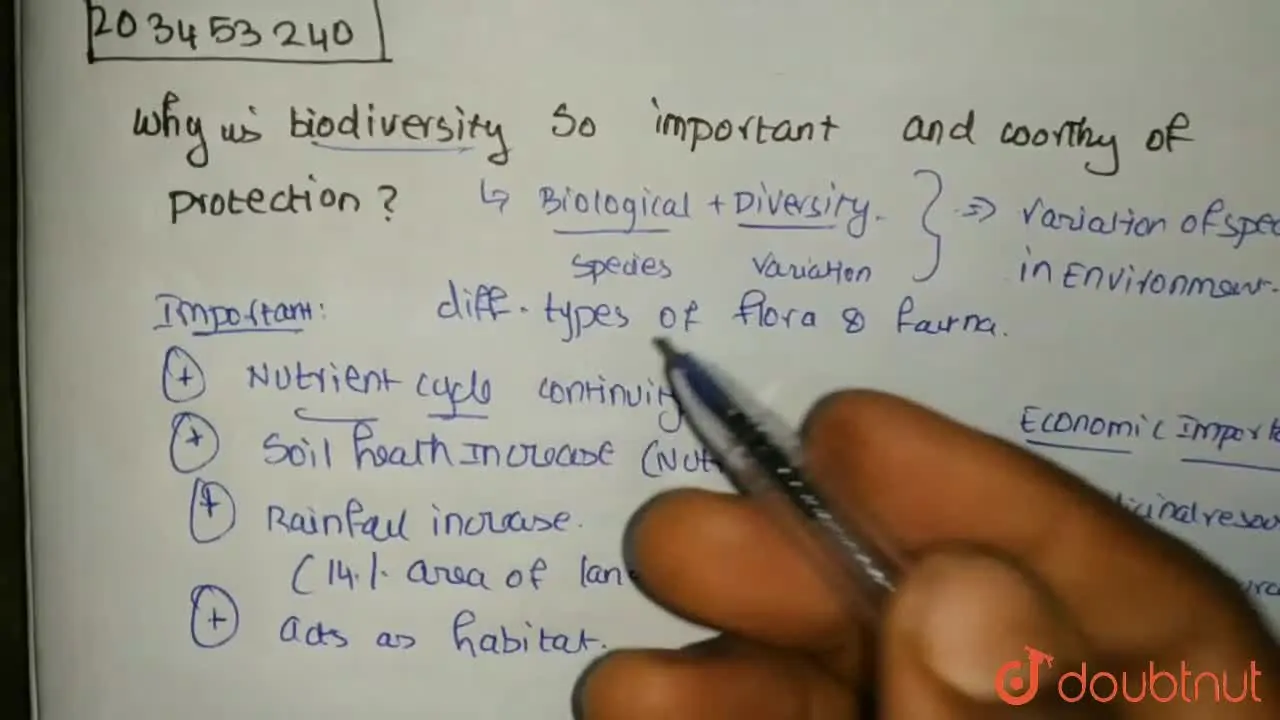 203453240
Why is biodiversity so important and worthy of
protection? ↳ Biological + Diversity. } => variation of
species variation in Environment.
Important: diff. types of flora & fauna.
+ Nutrient cycle continuity
+ Soil heath Increase (
+ Rainfall increase.
(14% area of
+ acts as habitat.
Economic
doubtnut